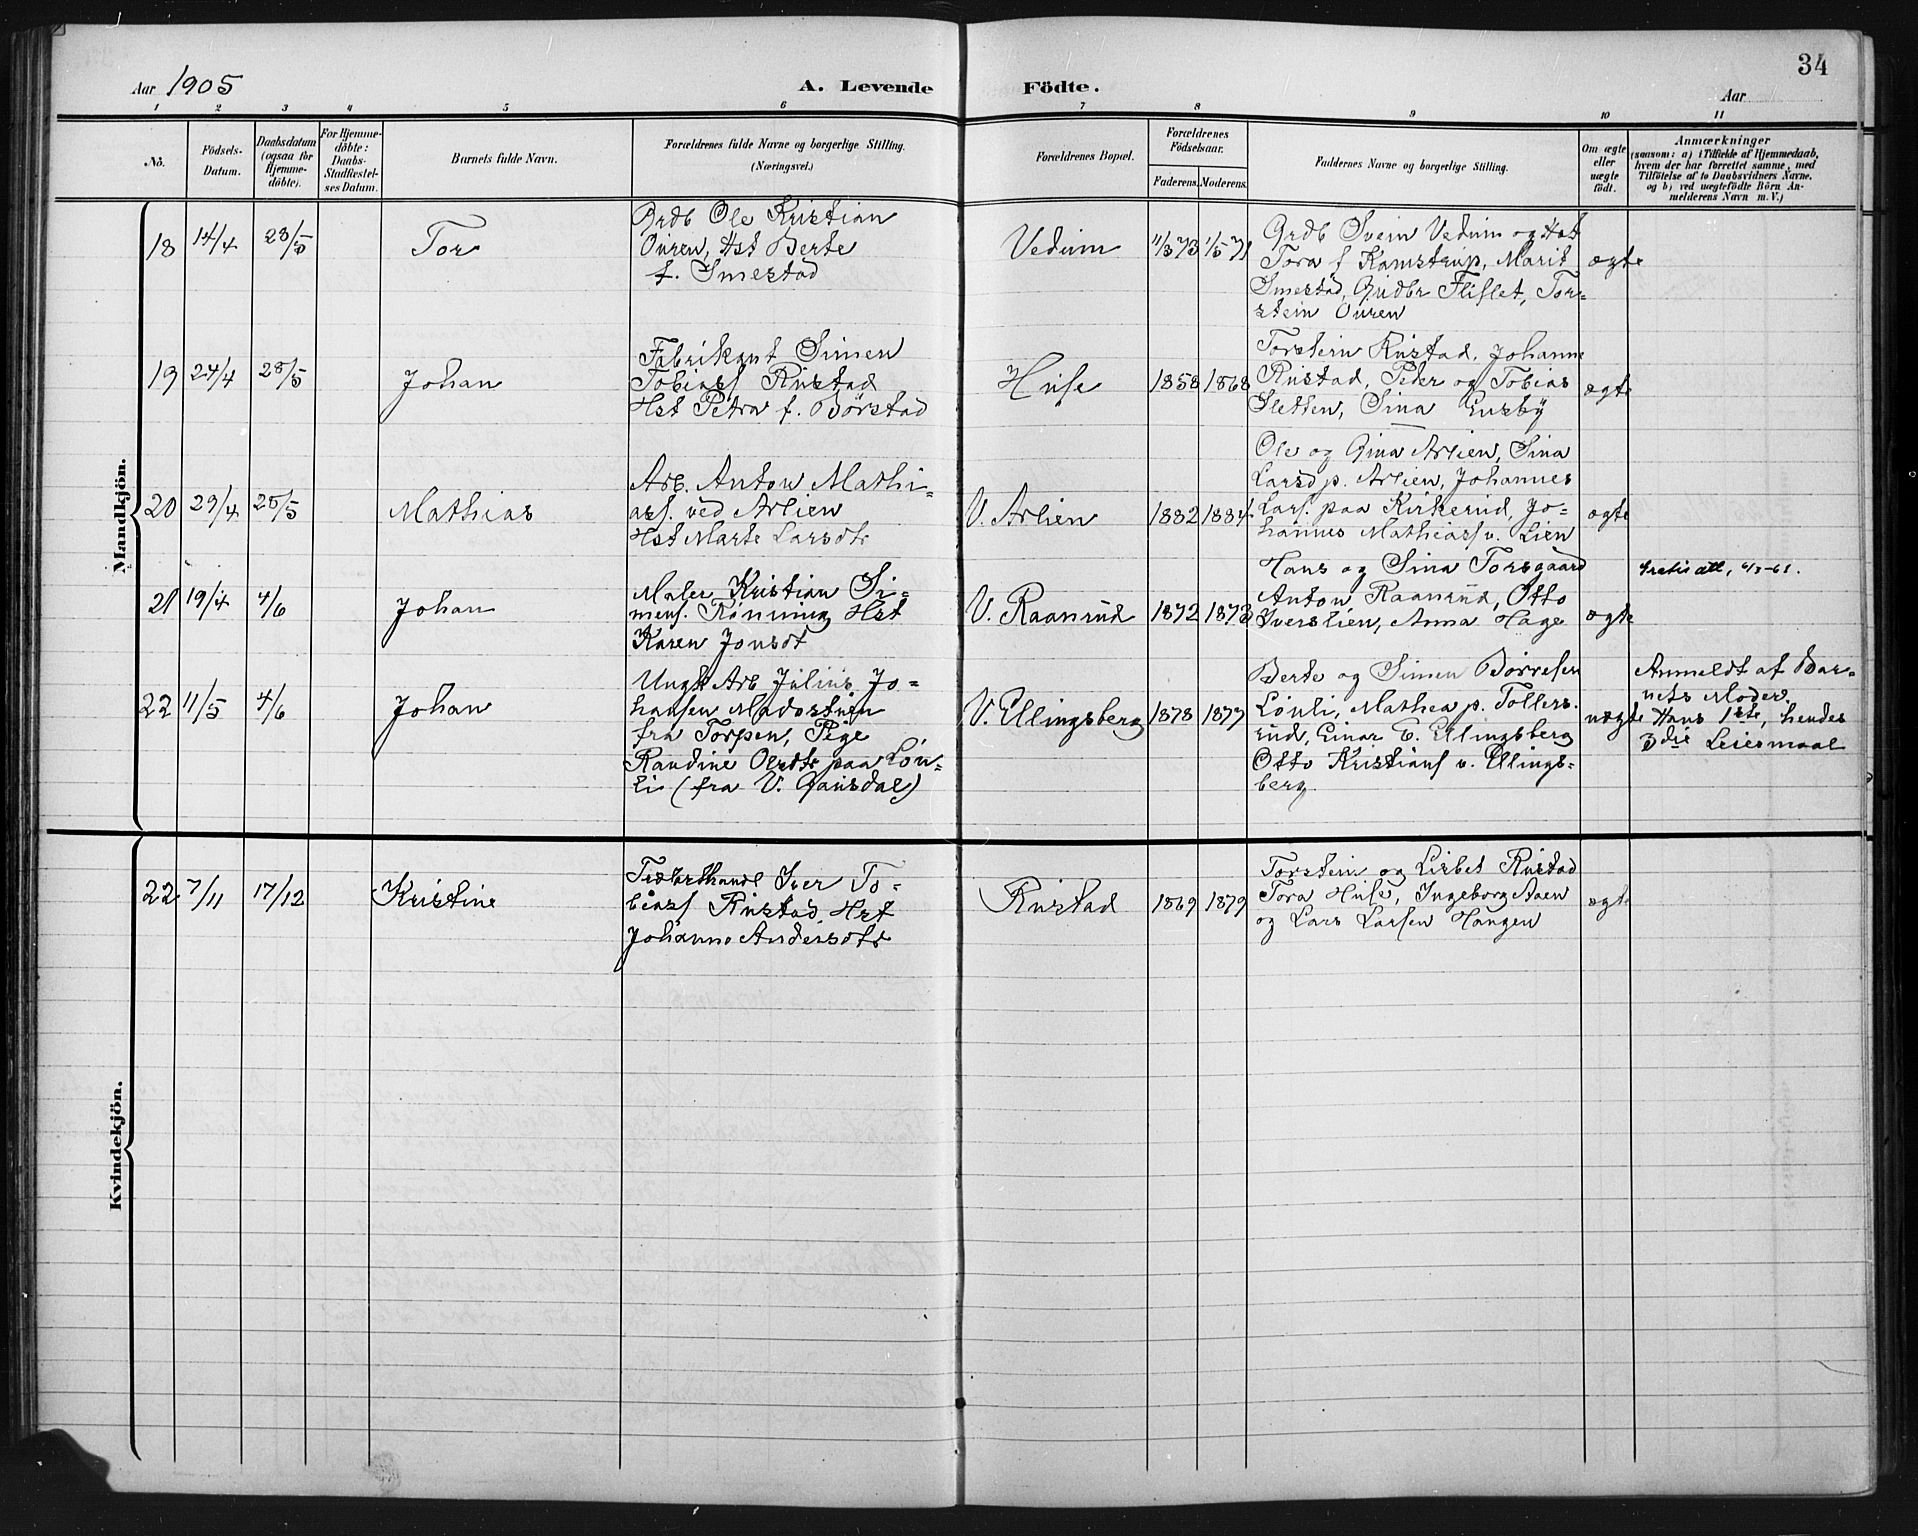 34
Aar 1905
A. Levende Födte.
Aar
1 2 3 4 5 6 7 8 9 10 11
No.
Födsels-
Datum.
Daabsdatum
(ogsaa for
Hjemme-
döbte).
For Hjemme-
döbte:
Daabs-
Stadfæstel-
ses Datum.
Barnets fulde Navn.
Forældrenes fulde Navne og borgerlige Stilling.
(Næringsvei.)
Forældrenes Bopæl.
Forældrenes
Födselsaar.
Faderens. Moderens.
Faddernes Navne og borgerlige Stilling.
Om ægte
eller
uægte
født.
Anmærkninger
(saasom: a) i Tilfælde af Hjemmedaab,
hvem der har forrettet samme, med
Tilföielse af to Daabsvidners Navne.
og b) ved uægtefödte Börn An-
melderens Navn m. V.)
Mandkjön.
18 14/4 28/5 Tor
Grdb Ole Kristian
Ouren, Hst Berte
f. Smestad
Vedum 11/3 73 1/5 71
Grdb Svein Vedum og Hst
Tora f Kamstrup, Marit
Smestad, Gudbr Fliflet, Tor=
stein Ouren
ægte
19 24/4 28/5 Johan
Fabrikant Simen
Tobiass Rustad
Hst Petra f. Börstad
Huse 1858 1868
Torstein Rustad, Johanne
Rustad, Peder og Tobias
Sletten, Sina Ensby
ægte
20 29/4 28/5 Mathias
Arb. Anton Mathi=
ass. ved Arlien
Hst Marte Larsdtr
V. Arlien 1882 1884
Ole og Gina Arlien, Sina
Larsd p. Arlien, Johannes
Lars. paa Kirkerud, Jo=
hannes Mathiass v. Lien
ægte
21 19/4 4/6 Johan
Maler Kristian Si=
mens. Rönning Hst
Karen Jonsdt
V. Raanrud 1872 1873
Hans og Sina Torsgaard
Anton Raanrud, Otto
Iverslien, Anna Hage
ægte
22 11/5 4/6 Johan
Ungk Arb Julius Jo=
hansen
fra Torpen, Pige
Randine Olsdtr paa Lön=
li (fra V. Gausdal)
V. Ellingsberg 1878 1877
Berte og Simen Börresen
Lönli, Mathea p. Tollers
rud, Einar E. Ellingsberg
Otto Kristians v. Ellings=
berg.
uægte
Anmeldt af Bar=
nets Moder.
Hans 1ste, hendes
3die Leiermaal
Kvindekjön.
22 7/11 17/12 Kristine
Iver To=
biass Rustad, Hst
Johanne Andersdtr
Rustad 1869 1879
Torstein og Lisbet Rustad
Tora Huse, Ingeborg Aaen
og Lars Larsen Haugen
ægte